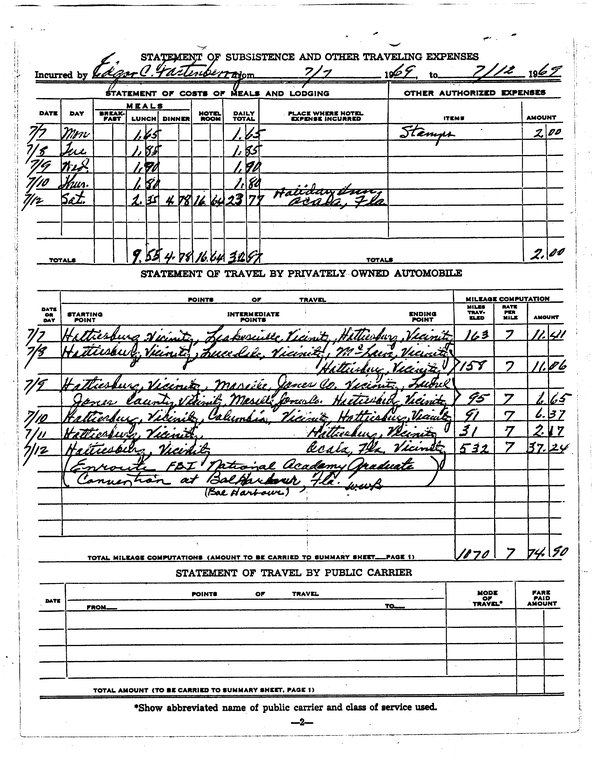 STATEMENT OF SUBSISTENCE AND OTHER TRAVELING EXPENSES
Incurred by Edgar C. Fortenberry from 7/7 1969, to 7/12 1969
STATEMENT OF COSTS OF MEALS AND LODGING OTHER AUTHORIZED EXPENSES
DATE DAY MEALS BREAK-FAST LUNCH DINNER HOTEL ROOM DAILY TOTAL PLACE WHERE HOTEL EXPENSE INCURRED ITEMS AMOUNT
7/7 Mon 1.65 1.65 Stamps 2.00
7/8 Tue 1.85 1.85
7/9 Wed. 1.90 1.90
7/10 Thur. 1.80 1.80
7/12 Sat. 2.35 4.78 16.64 23.77 Holiday Inn, Ocala, Fla
TOTALS 9.55 4.78 16.64 30.97 TOTALS 2.00
STATEMENT OF TRAVEL BY PRIVATELY OWNED AUTOMOBILE
DATE OR DAY POINTS OF TRAVEL MILEAGE COMPUTATION
STARTING POINT INTERMEDIATE POINTS ENDING POINT MILES TRAV-ELED RATE PER MILE AMOUNT
7/7 Hattiesburg Vicinity, Leakesville, Vicinity, Hattiesburg, Vicinity 163 7 11.41
7/8 Hattiesburg, Vicinity, Lucedale, Vicinity, McLain, Vicinity
Hattiesburg, Vicinity 158 7 11.06
7/9 Hattiesburg, Vicinity, Jones Co. Vicinity, Laurel
Jones County, Vicinity, Hattiesburg, Vicinity 95 7 6.65
7/10 Hattiesburg, Vicinity, Columbia, Vicinity Hattiesburg, Vicinity 91 7 6.37
7/11 Hattiesburg, Vicinity. Hattiesburg, Vicinity 31 7 2.17
7/12 Hattiesburg, Vicinity Ocala, Fla. Vicinity 532 7 37.24
(Enroute FBI National Academy Graduate
Convention at Bal Harbour, Fla.)
(Bal Harbour)
TOTAL MILEAGE COMPUTATIONS (AMOUNT TO BE CARRIED TO SUMMARY SHEET PAGE 1) 1070 7 74.90
STATEMENT OF TRAVEL BY PUBLIC CARRIER
DATE POINTS OF TRAVEL MODE OF TRAVEL* FARE PAID AMOUNT
FROM TO
TOTAL AMOUNT (TO BE CARRIED TO SUMMARY SHEET, PAGE 1)
*Show abbreviated name of public carrier and class of service used.
—2—